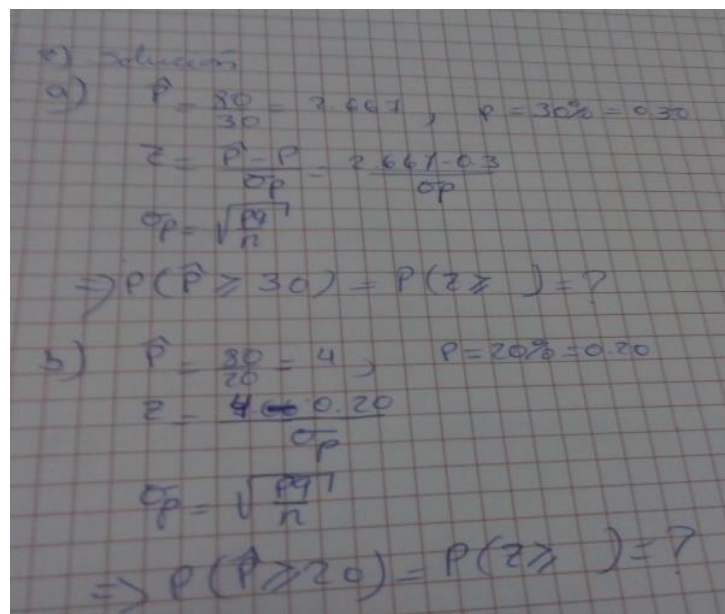 c) Solución
a) p̂ = 80/30 = 2.667 , p = 30% = 0.30
z = (p̂ - p)/σp = (2.667 - 0.3)/σp
σp = √(pq/n)
⇒ P(p̂ ≥ 30) = P(z ≥ ) = ?
b) p̂ = 80/20 = 4 , p = 20% = 0.20
z = 4 0.20/σp
σp = √(pq/n)
⇒ P(p̂ ≥ 20) = P(z ≥ ) = ?